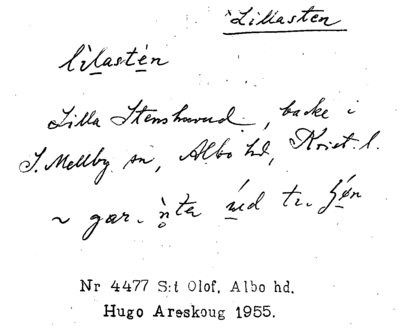 Lillasten
lìlastén
Lilla Stenshuvud, backe i
S. Mellby sn, Albo hd, Krist. l.
~ gar.
Nr 4477 S:t Olof, Albo hd.
Hugo Areskoug 1955.